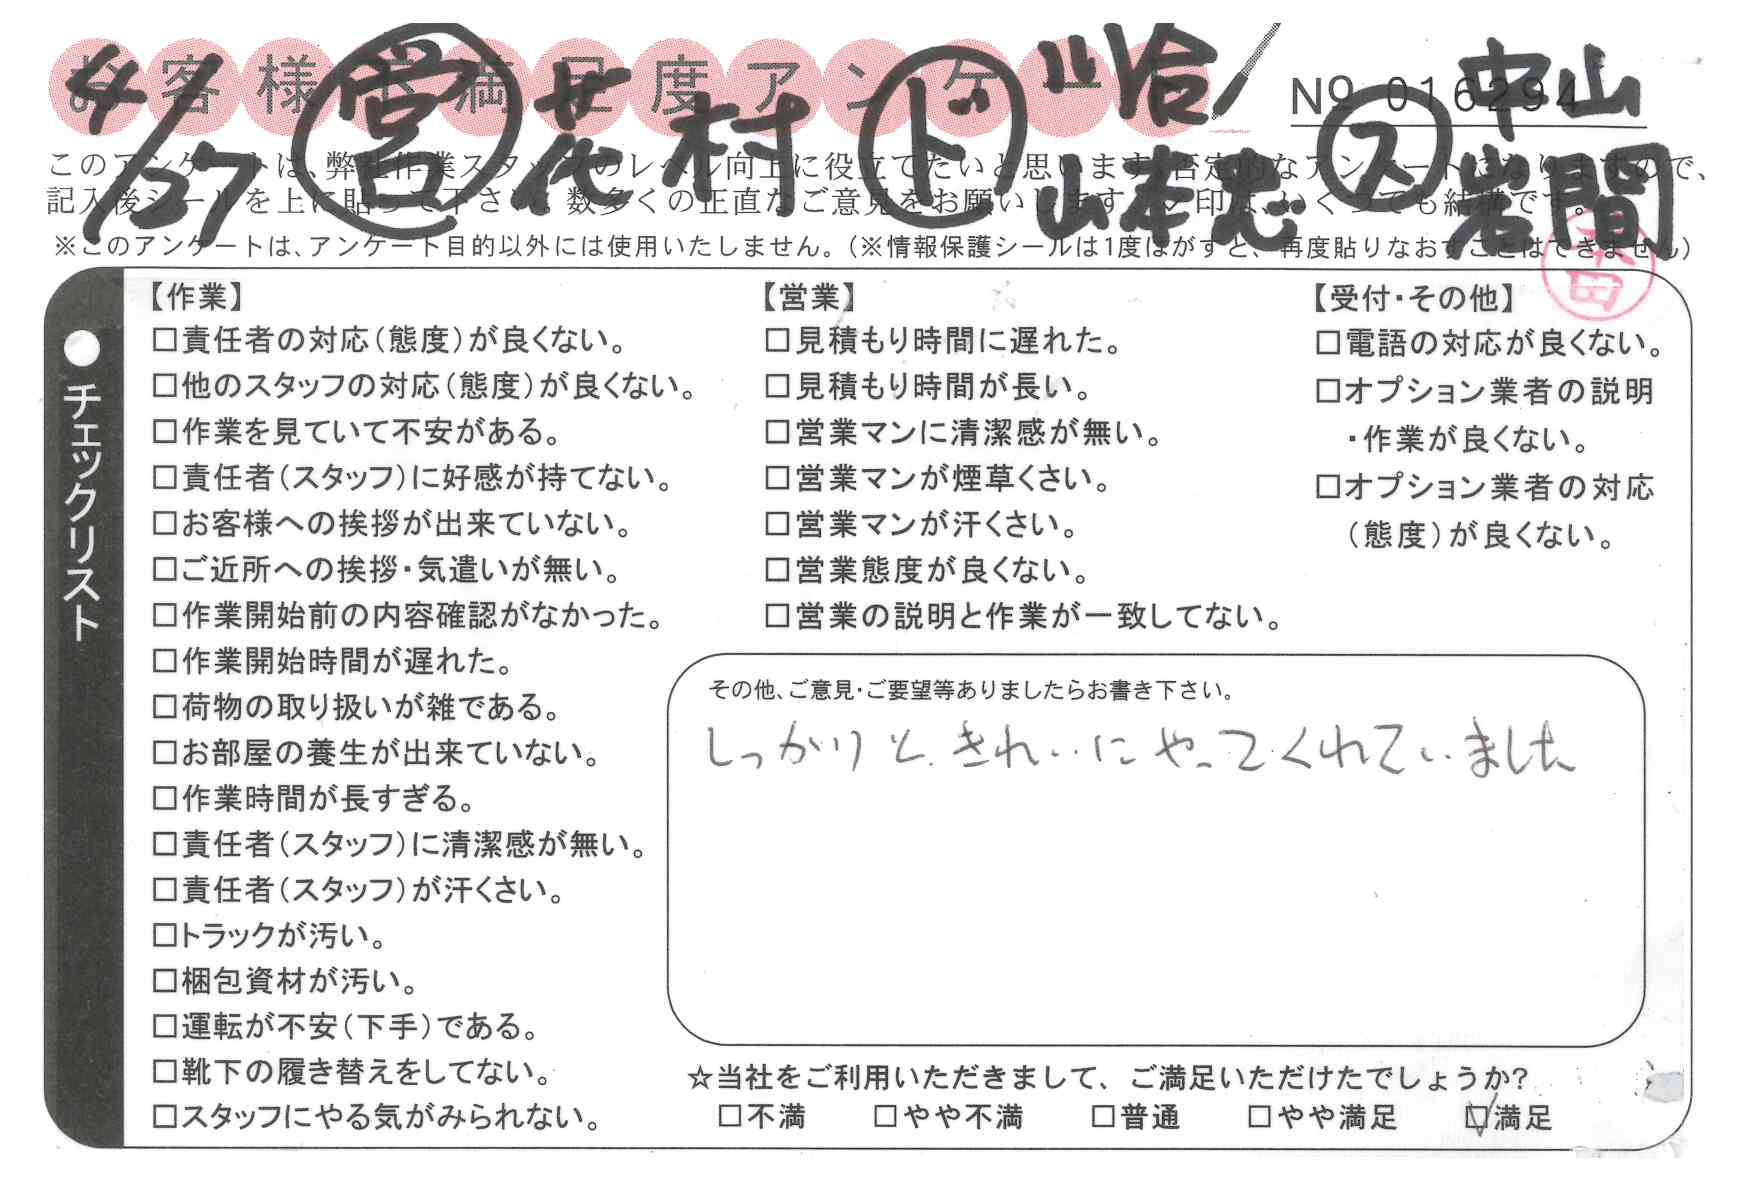 お客様不満足度アンケート
4/27 営 花村 ド 川合/ 山本忠 ス 中山 岩間
No 016294
このアンケートは、弊社作業スタッフのレベル向上に役立てたいと思います。否定的なアンケートになりますので、
記入後シールを上に貼って下さい。数多くの正直なご意見をお願いします。レ印は、いくつでも結構です。
※このアンケートは、アンケート目的以外には使用いたしません。(※情報保護シールは1度はがすと、再度貼りなおすことはできません)
●チェックリスト
【作業】
□責任者の対応(態度)が良くない。
□他のスタッフの対応(態度)が良くない。
□作業を見ていて不安がある。
□責任者(スタッフ)に好感が持てない。
□お客様への挨拶が出来ていない。
□ご近所への挨拶・気遣いが無い。
□作業開始前の内容確認がなかった。
□作業開始時間が遅れた。
□荷物の取り扱いが雑である。
□お部屋の養生が出来ていない。
□作業時間が長すぎる。
□責任者(スタッフ)に清潔感が無い。
□責任者(スタッフ)が汗くさい。
□トラックが汚い。
□梱包資材が汚い。
□運転が不安(下手)である。
□靴下の履き替えをしてない。
□スタッフにやる気がみられない。
【営業】
□見積もり時間に遅れた。
□見積もり時間が長い。
□営業マンに清潔感が無い。
□営業マンが煙草くさい。
□営業マンが汗くさい。
□営業態度が良くない。
□営業の説明と作業が一致してない。
【受付・その他】
□電語の対応が良くない。
□オプション業者の説明
・作業が良くない。
□オプション業者の対応
(態度)が良くない。
その他、ご意見・ご要望等ありましたらお書き下さい。
しっかりと、きれいにやってくれていました
☆当社をご利用いただきまして、ご満足いただけたでしょうか?
□不満 □やや不満 □普通 □やや満足 ☑満足